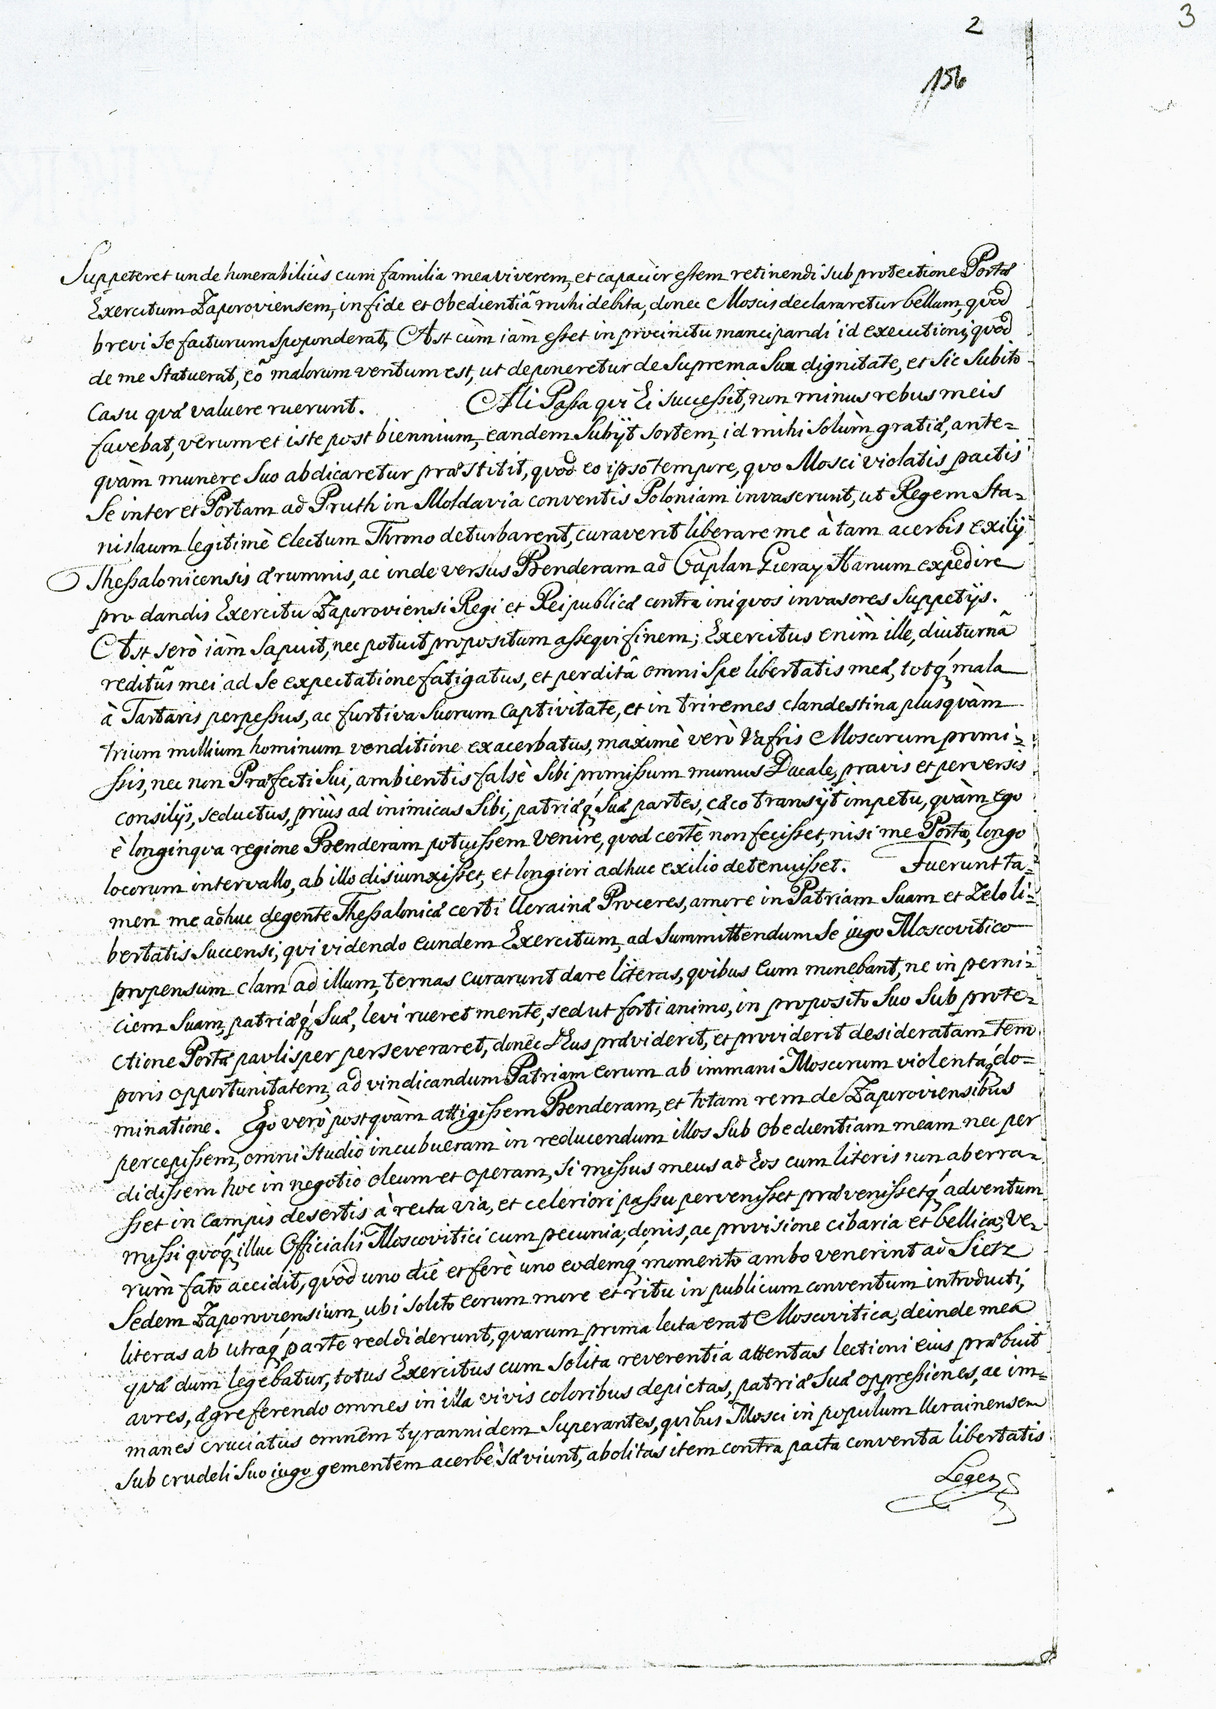 2
3
156
Suppeteret unde honerabiliùs cum familia mea viverem, et capacior essem retinendi sub protectione Portæ
Exercitum Zaporoviensem, in fide et obedientiâ mihi debita, donec Moscis declararetur bellum, quod
brevi se facturum spoponderat, Ast cùm iàm esset in procinctu mancipandi id executioni, quod
de me statuerat, eô malorum ventum est, ut deponeretur de suprema sua dignitate, et sic subito
casu quæ valuere ruerunt. Ali Passa qui Ei successit, non minus rebus meis
favebat, verum et iste post biennium, eandem subijt sortem, id mihi solùm gratiæ, ante=
quàm munere suo abdicaretur præstitit, quod eo ipso tempore, quo Mosci violatis pactis
se inter et Portam ad Pruth in Moldavia conventis Poloniam invaserunt, ut Regem Sta=
nislaum legitimè electum Throno deturbarent, curaverit liberare me à tam acerbis exilij
Thessalonicensis ærumnis, ac inde versus Benderam ad Caplan Gieray Hanum expedire
pro dandis Exercitu Zaporoviensi Regi et Reipublicæ contra iniquos invasores suppetijs.
Ast serò iàm sapuit, nec potuit propositum assequi finem; Exercitus enim ille, diuturnâ
reditûs mei ad se expectatione fatigatus, et perditâ omni spe libertatis meæ, totq́ mala
à Tartaris perpessus, ac furtiva suorum captivitate, et in triremes clandestina plusquàm
trium millium hominum venditione exacerbatus, maximè verò vafris Moscorum promi=
ssis, nec non Præfecti sui, ambientis falsè sibi promissum munus Ducale, pravis et perversis
consilijs, seductus, priùs ad inimicas sibi, patriæq́ suæ partes, cæco transijt impetu, quàm ego
è longinqua regione Benderam potuissem venire, quod certè non fecisset, nisi me Porta, longo
locorum intervallo, ab illo disiunxisset, et longiori adhuc exilio detenuisset. Fuerunt ta=
men me adhuc degente Thessalonicæ certi Ucrainæ Proceres, amore in Patriam suam et Zelo li=
bertatis succensi, qui videndo eundem Exercitum, ad summittendum se iugo Moscovitico
propensum clam ad illum, ternas curarunt dare literas, quibus eum monebant, ne in perni=
ciem suam, patriæq́ suæ, levi rueret mente, sed ut forti animo, in proposito suo sub prote=
ctione Portæ paulisper perseveraret, donec Deus præviderit, et providerit desideratam tem
poris opportunitatem, ad vindicandum Patriam eorum ab immani Moscorum violentaq́ do=
minatione. Ego verò postquàm attigissem Benderam, et totam rem de Zaporoviensibus
percepissem, omni studio incubueram in reducendum illos sub obedientiam meam nec per
didissem hoc in negotio oleum et operam, si missus meus ad Eos cum literis non aberra=
sset in campis desertis à recta via, et celeriori passu pervenisset prævenissetq́ adventum
missi quoq́ illuc Officialis Moscovitici cum pecunia, donis, ac provisione cibaria et bellica; ve=
rùm fato accidit, quòd uno die et ferè uno eodemq́ momento ambo venerint ad Sietz
Sedem Zaporoviensium, ubi solito eorum more et ritu in publicum conventum introducti,
literas ab utraq́ parte reddiderunt, quarum prima lecta erat Moscovitica, deinde mea
quæ dum legebatur, totus Exercitus cum solita reverentia attentas lectioni eius præbuit
aures, ægre ferendo omnes in illa vivis coloribus depictas, patriæ suæ oppressiones, ac im=
manes cruciatus omnem tyrannidem superantes, quibus Mosci in populum Ucrainensem
sub crudeli suo iugo gementem acerbè sæviunt, abolitas item contra pacta conventa libertatis
Leges